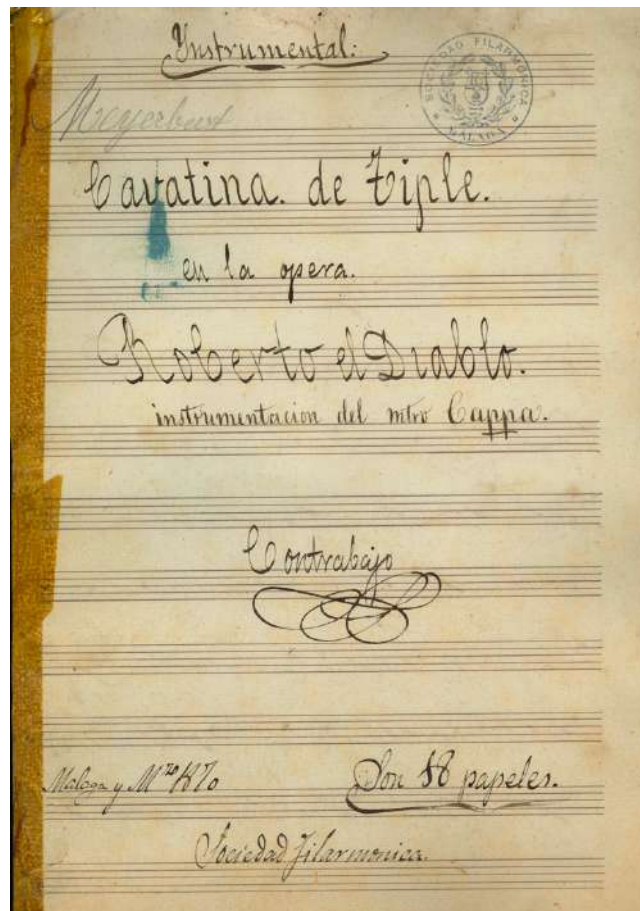 Ynstrumental:
SOCIEDAD FILARMÓNICA
MALAGA
Meyerbeer
Cavatina. de tiple.
en la opera.
Roberto el Diablo.
instrumentacion del mtro Cappa.
Contrabajo
Malaga y Mzo 1870
Son 18 papeles.
Sociedad Filarmonica.